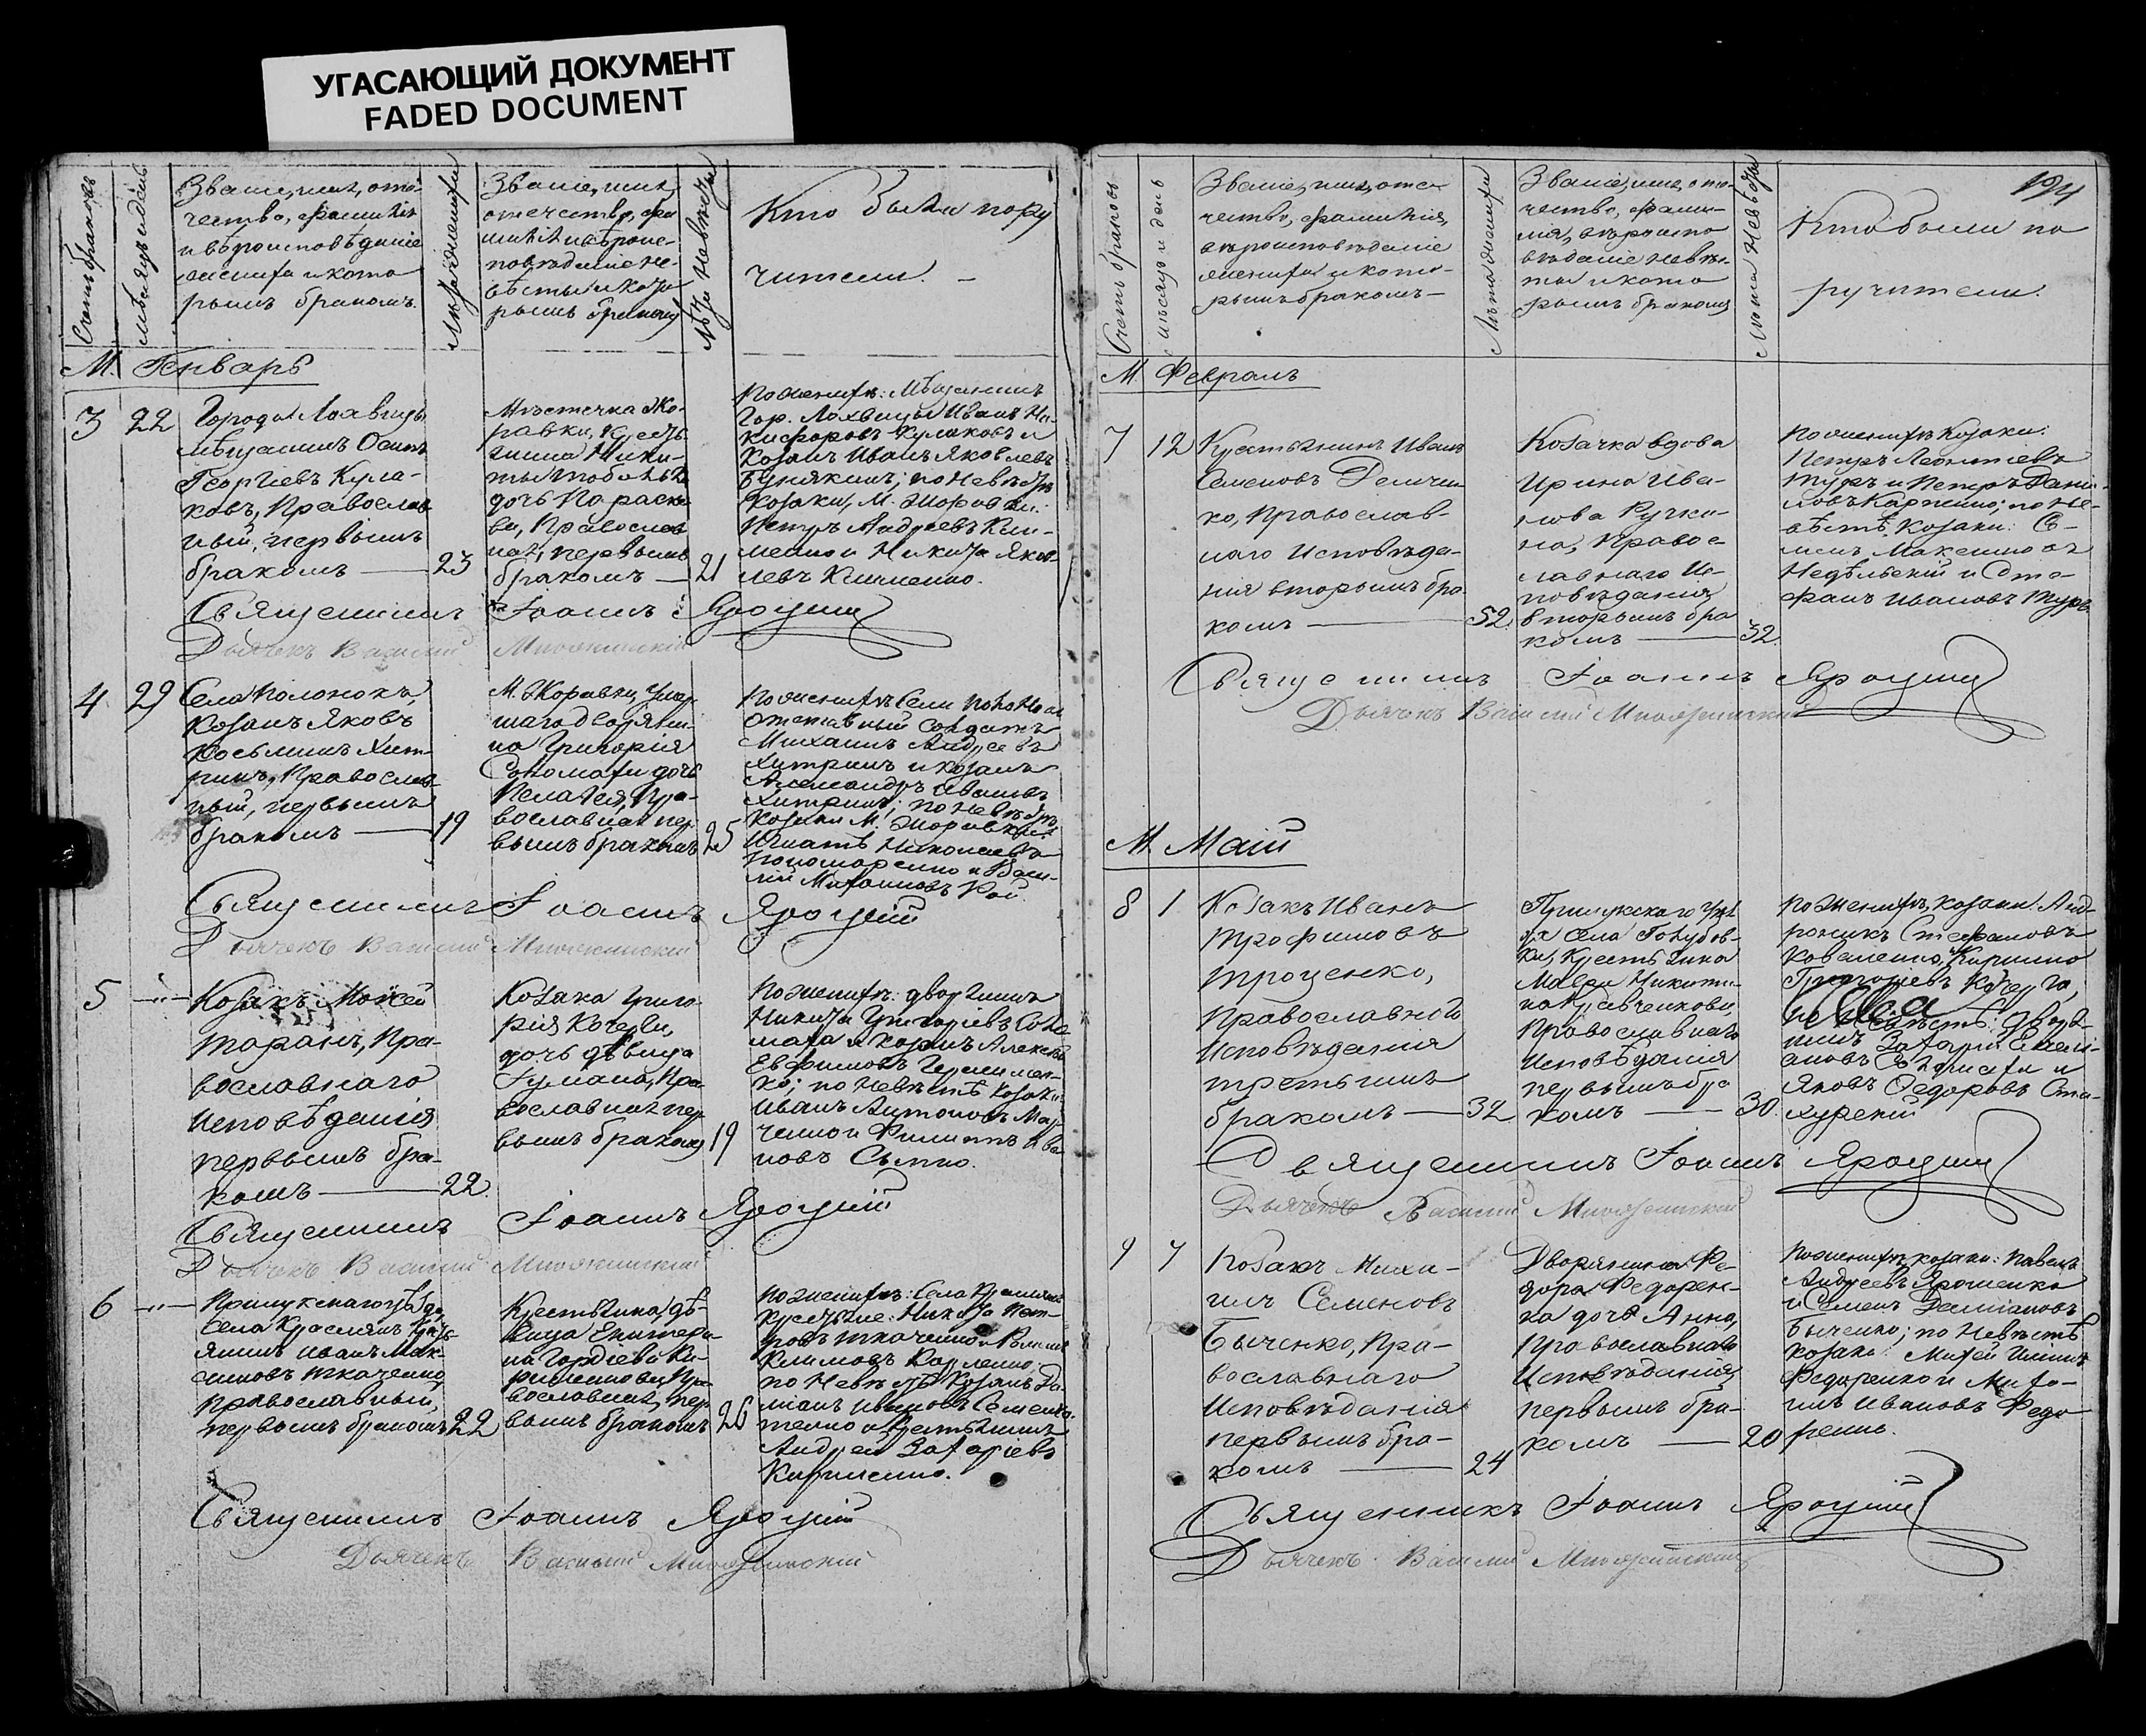 УГАСАЮЩИЙ ДОКУМЕНТ
FADED DOCUMENT
Счетъ браковъ
Мѣсяцъ и день
Званіе, имя, оте-
чество, фамилія
и вѣроисповѣданіе
жениха и кото
рымъ бракомъ.
Лѣта жениха
Званіе, имя,
отечество, фа
милія и вѣроис-
повѣданіе не-
вѣсты и кото
рымъ бракомъ
Лѣта невѣсты
Кто были пору
чители. –
М. Генварь
3
22
Города Лохвицы
мѣщанинъ Осипъ
Георгіевъ Кула-
ковъ, Православ
ный, первымъ
бракомъ — 23
Мѣстечка Жо-
равки, 
дочь Параске
ва, Православ
ная, первымъ
бракомъ — 21
По женихѣ: Мѣщанинъ
Гор. Лохвицы Иванъ Ни-
кифоровъ Кулаковъ и
Козакъ Иванъ Яковлевъ
по невѣстѣ
Козаки, М. Жоравки:
Петръ Андреевъ Кли-
менко и Никита Яков-
левъ Клименко.
Священникъ Іоаннъ Яроцкій
Дьячекъ Василій
4
29
Села Полонокъ,
Козакъ Яковъ
Косьминъ Хит-
ринъ, Православ
ный, первымъ
бракомъ — 19
М. Жоравки, умер
шаго дворяни-
на Григорія
Соломахи дочь
Пелагея, Пра-
вославная пер
вымъ бракомъ 25
По женихѣ Села Полонокъ
отставный солдатъ
Михаилъ Андреевъ
Хитринъ и козакъ
Александръ Ивановъ
Хитринъ; по невѣстѣ
Козаки М. Жоравки:
Игнатъ Николаевъ
Пономаренко и Васи-
лій
Священникъ Іоаннъ Яроцкій
Дьячекъ Василій
5
–"–
Козакъ Моисей
Таранъ, Пра-
вославнаго
Исповѣданія
первымъ бра-
комъ — 22.
Козака Григо
рія Кочерги,
дочь дѣвица
Іуліана, Пра
вославная пер
вымъ бракомъ 19
По женихѣ: дворянинъ
Никита Григоріевъ Соло
маха и козакъ Алексѣй
Евфимовъ
ко; по невѣстѣ Козаки:
Иванъ Антоновъ
ченко и Филиппъ Ива
новъ
Священникъ Іоаннъ Яроцкій
Дьячекъ Василій
6
–"–
Прилукскаго уѣзда
Села Краслянъ Крест-
янинъ Иванъ Мак-
симовъ Ткаченко
православный,
первымъ бракомъ 22
Крестьянка, дѣ-
вица Екатери
на Гордіева Ки-
риленкова, Пра-
вославная, пер
вымъ бракомъ 26
По женихѣ: Села Краслянъ
Крестьяне: Никита Пет-
ровъ Ткаченко и
Климовъ
по невѣстѣ Козакъ
Ивановъ
и Крестьянинъ
Андрей Захаріевъ
Кириленко.
Священникъ Іоаннъ Яроцкій
Дьячекъ Василій
194
Счетъ браковъ
Мѣсяцъ и день
Званіе, имя, оте-
чество, фамилія,
вѣроисповѣданіе
жениха и кото-
рымъ бракомъ —
Лѣта жениха
Званіе, имя, оте-
чество, фами-
лія, вѣроиспо
вѣданіе невѣс-
ты и кото
рымъ бракомъ
Лѣта невѣсты
Кто были по
ручители.
М. Февраль
7
12
Крестьянинъ Иванъ
Семеновъ
ко, Православ-
наго Исповѣда-
нія вторымъ бра
комъ — 52.
Козачка вдова
Ирина Ива-
нова
Правос
лавнаго Ис-
повѣданія
вторымъ бра
комъ — 32.
По женихѣ Козаки:
Петръ Леонтіевъ
Туръ и Петръ Дани-
ловъ Карпенко; по Не-
вѣстѣ Козаки: Се-
менъ Максимовъ
Недѣльскій и Сте-
фанъ Ивановъ Туръ
Священникъ Іоаннъ Яроцкій
Дьячекъ Василій
М. Май
8
1
Козакъ Иванъ
Трофимовъ
Троценко,
Православнаго
Исповѣданія
третьимъ
бракомъ — 32
Прилукскаго уѣз
да села Голубов-
ки, Крестьянка
Мавра Никити-
на
Православнаго
Исповѣданія
первымъ бра
комъ — 30
По женихѣ, козаки: Анд-
роникъ Стефановъ
Коваленко, Кирилло
Григоріевъ Кочерга,
по невѣстѣ: дворя-
нинъ Захарій Емели-
ановъ Соломаха и
Яковъ Ѳедоровъ Ста-
хурскій
Священникъ Іоаннъ Яроцкій
Дьячекъ Василій
9
7
Козакъ Миха-
илъ Семеновъ
Быченко, Пра-
вославнаго
Исповѣданія
первымъ бра-
комъ — 24
Дворянина Ѳе-
дора Федорен-
ка дочь Анна,
Православнаго
Исповѣданія
первымъ бра-
комъ — 20
По женихѣ, козаки: Павелъ
Андреевъ Ярошенко
и Семенъ Даміановъ
Быченко; по невѣстѣ
козаки:
Федоренко и Миха-
илъ Ивановъ Федо
ренко.
Священникъ Іоаннъ Яроцкій
Дьячекъ Василій